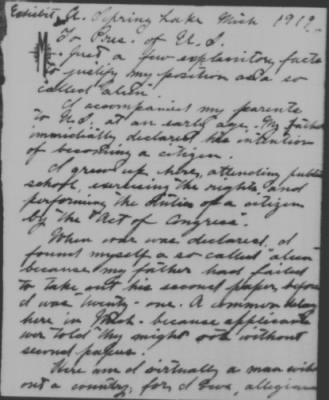 Exhibit A. Spring Lake Mich 1919
To Pres. of U.S.
Just a few explanitory facts
to justify my position as a so
called "alien".
I accompanied my parents
to U.S. at an early age. My father
immidiatly declared his intention
of becoming a citizen.
I grew up here, attending public
school, exercising the rights, and
performing the duties of a citizen
by the "Act of Congress".
When war was declared, I
found myself a so called "alien"
because my father had failed
to take out his second paper, before
I was twenty-one. A common
here in Mich. because applicants
wer told they might vote without
second papers.
Here am I virtually a man with
out a country, for I owe, allegiance